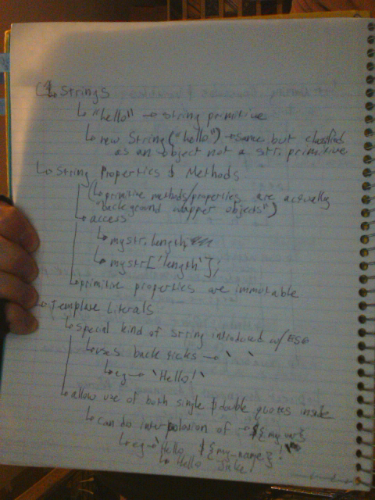 Strings
↳ "hello" → string primitive
↳ new String("hello") → same but classified
as an object not a str primitive
↳ String Properties & Methods
(↳ primitive methods/properties are actually
"background wrapper objects")
↳ access
↳ mystr.length
↳ mystr['length'];
↳ primitive properties are immutable
↳ Template Literals
↳ special kind of string introduced w/ ES6
↳ uses back ticks → ` `
↳ eg → `Hello!`
↳ allow use of both single & double quotes inside
↳ can do interpolation of → ${my var}
↳ eg → `Hello ${my_name}!`
↳ Hello Jake!